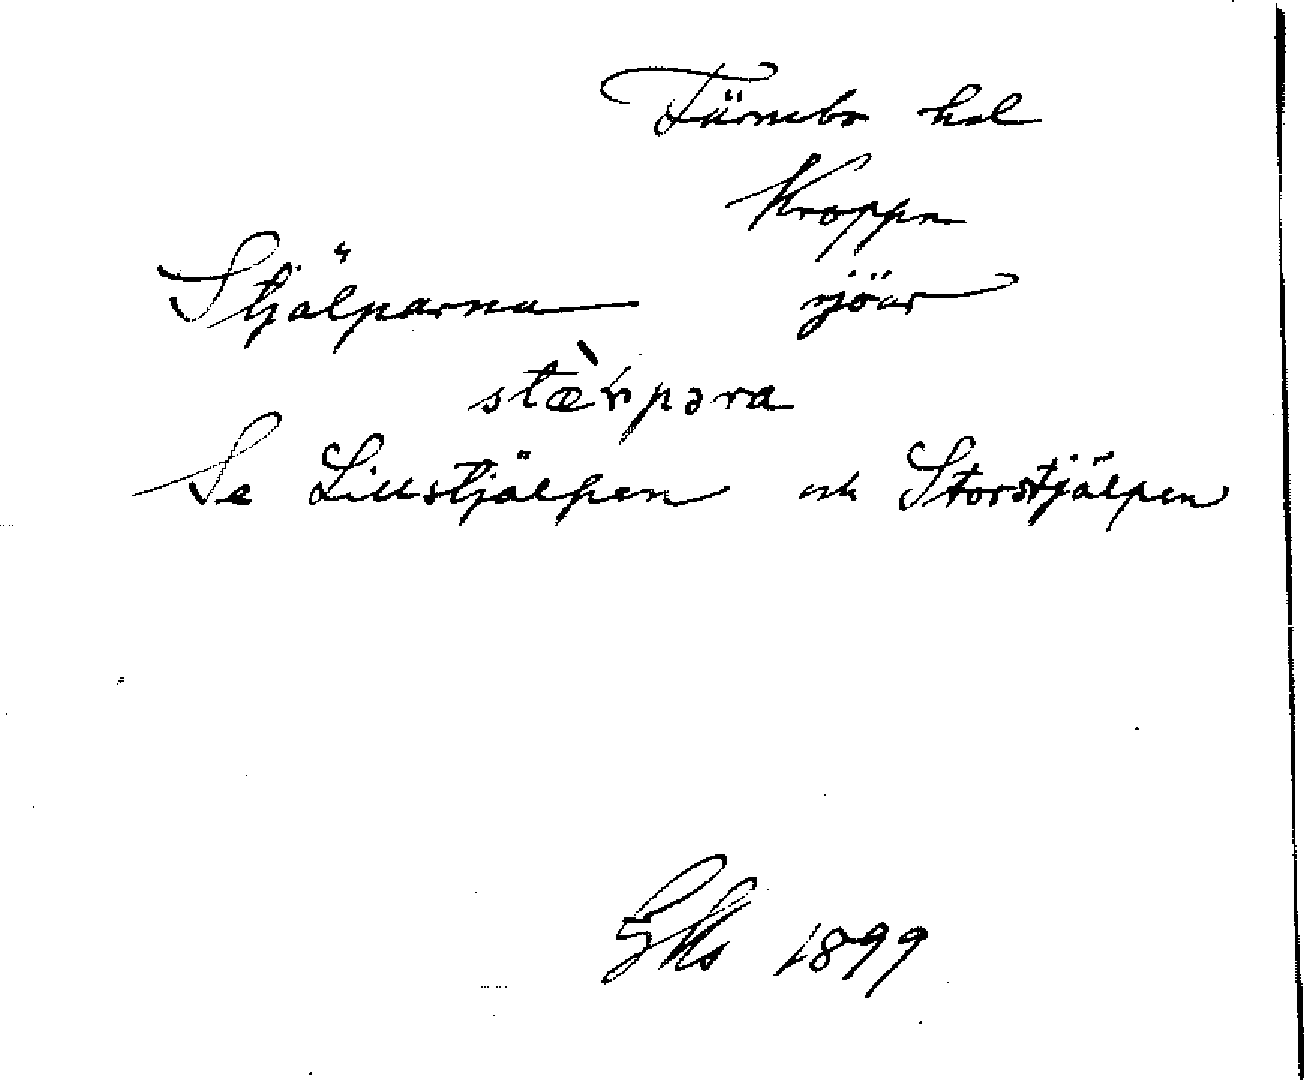 Färnebo hd
Kroppa
Stjälparna sjöar
stæ̀ɽpəra
Se Lillstjälpen och Storstjälpen
GKs 1899